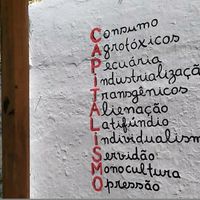 Consumo
Agrotóxicos
Pecuária
Industrializaçã
Transgênicos
Alienação
Latifúndio
Individualism
Servidão
Monocultura
Opressão